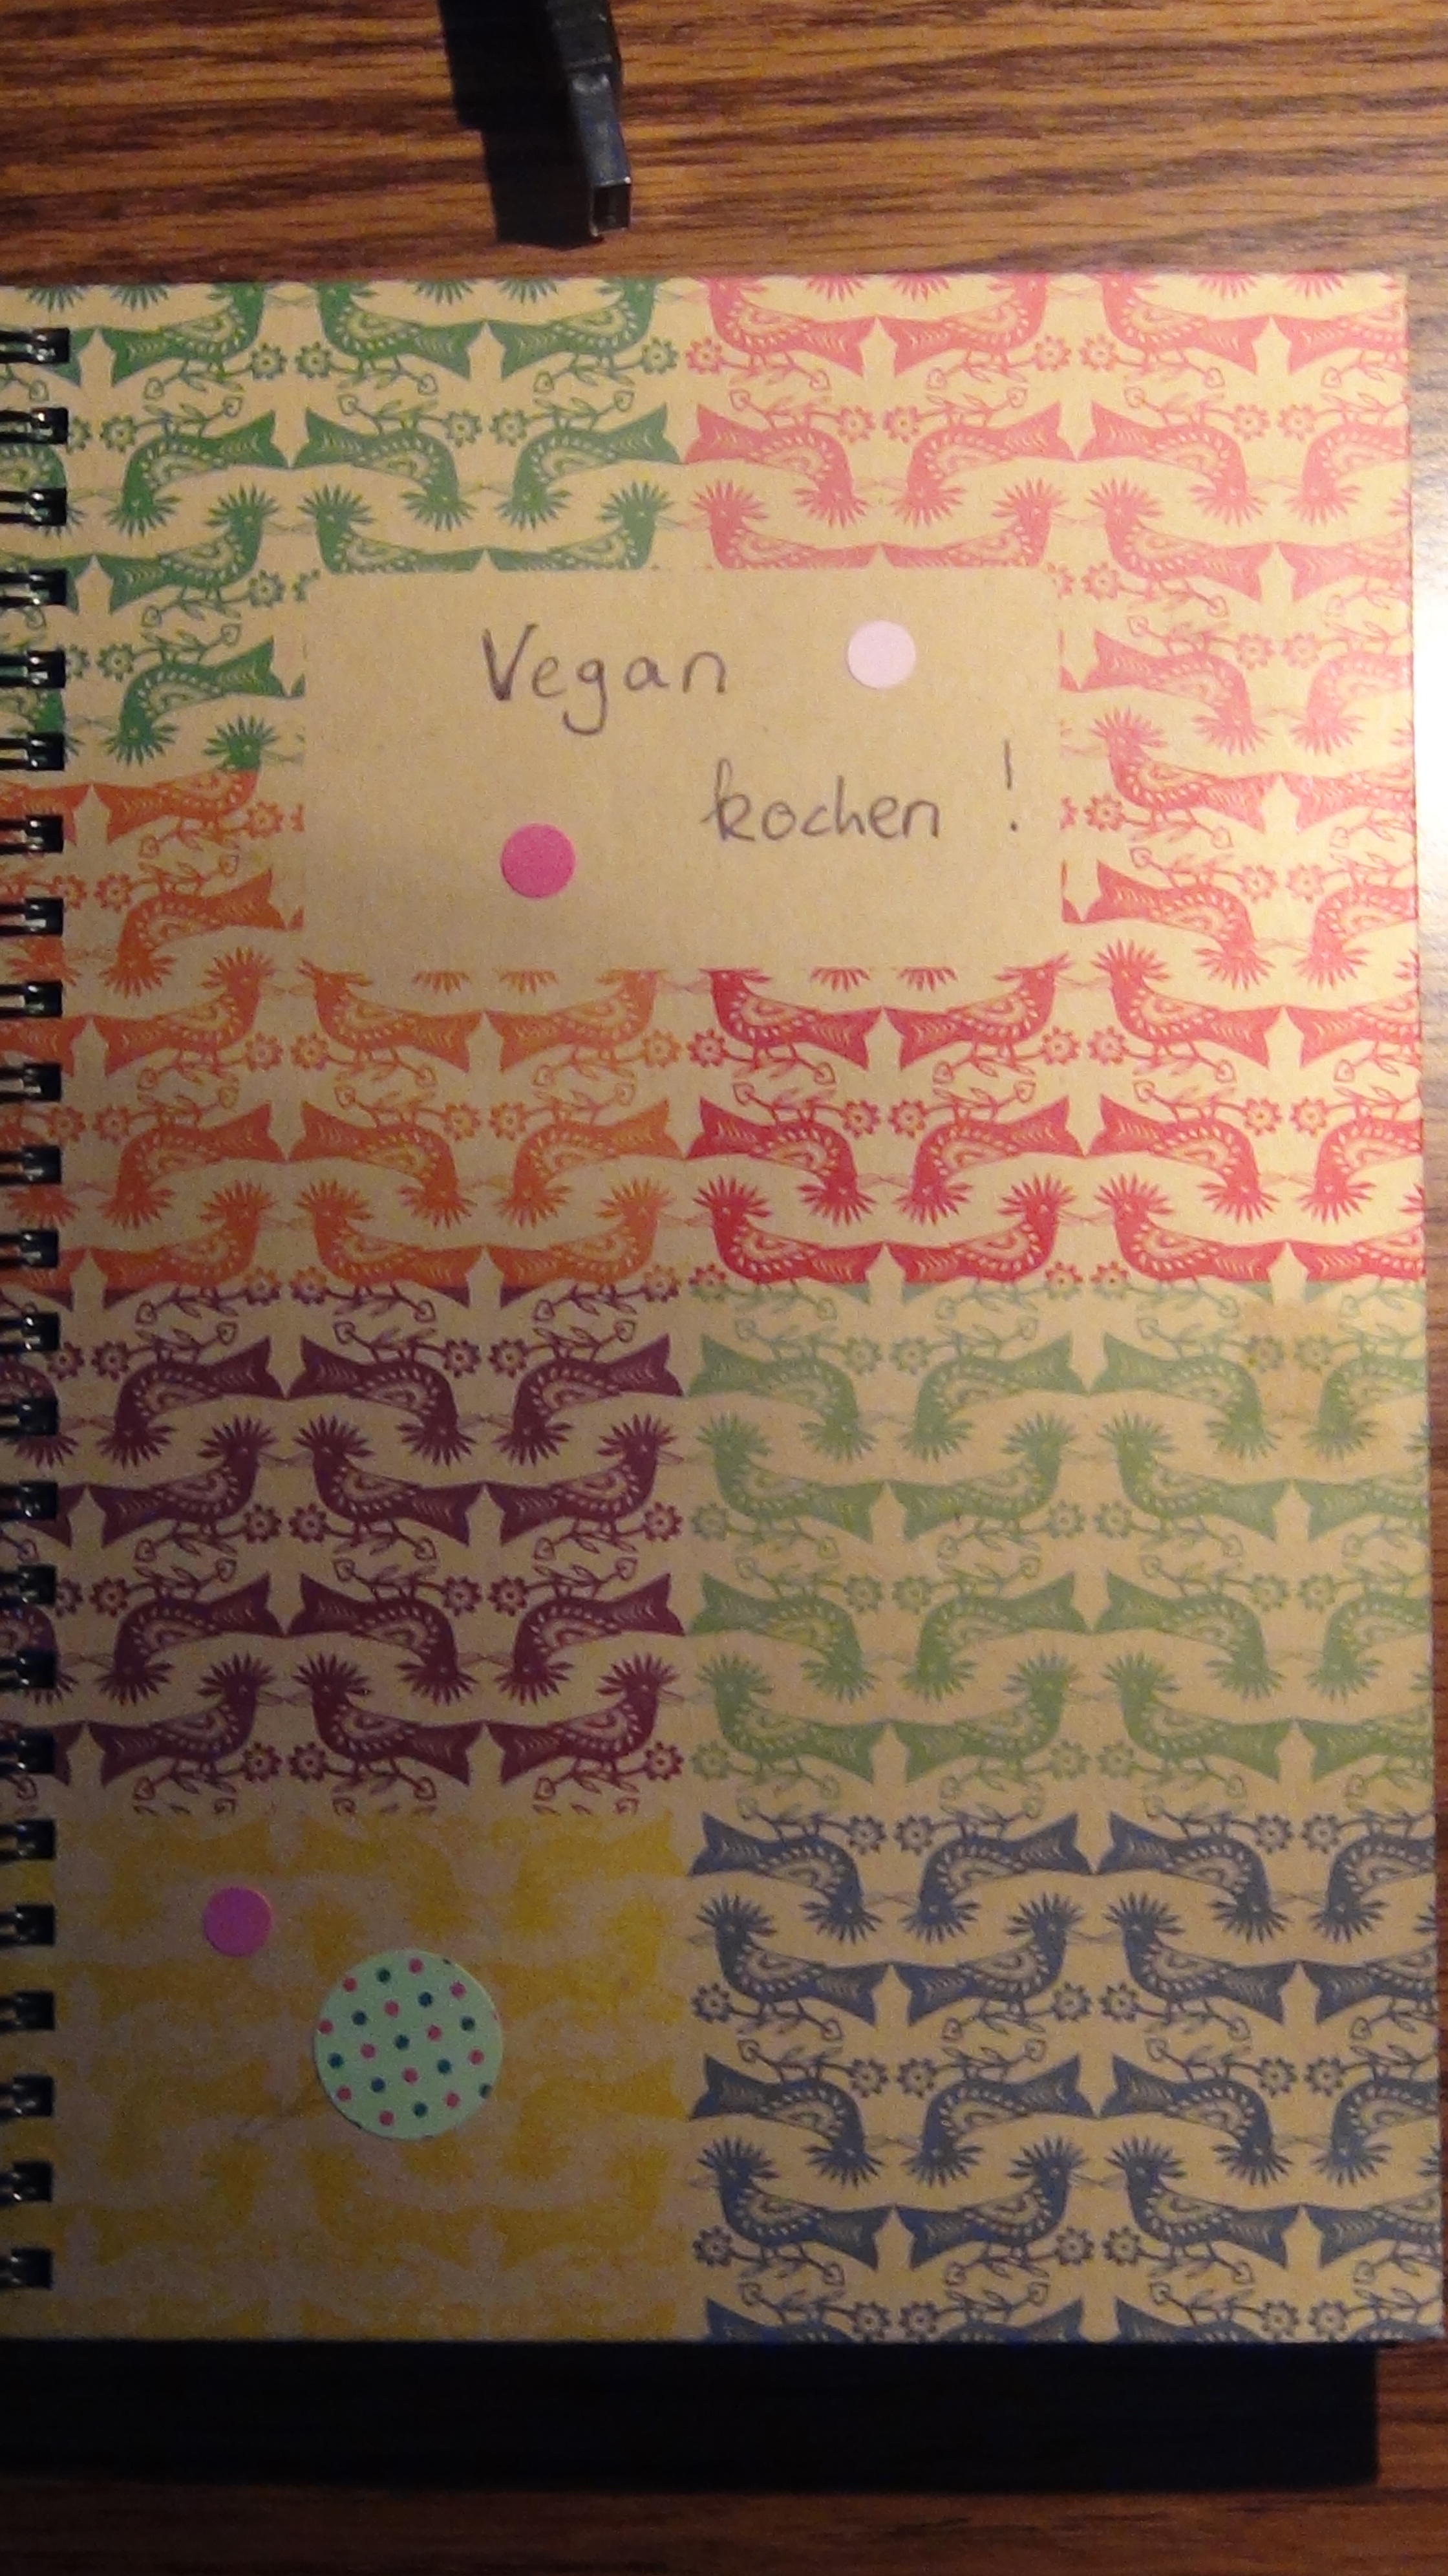 Vegan
kochen !